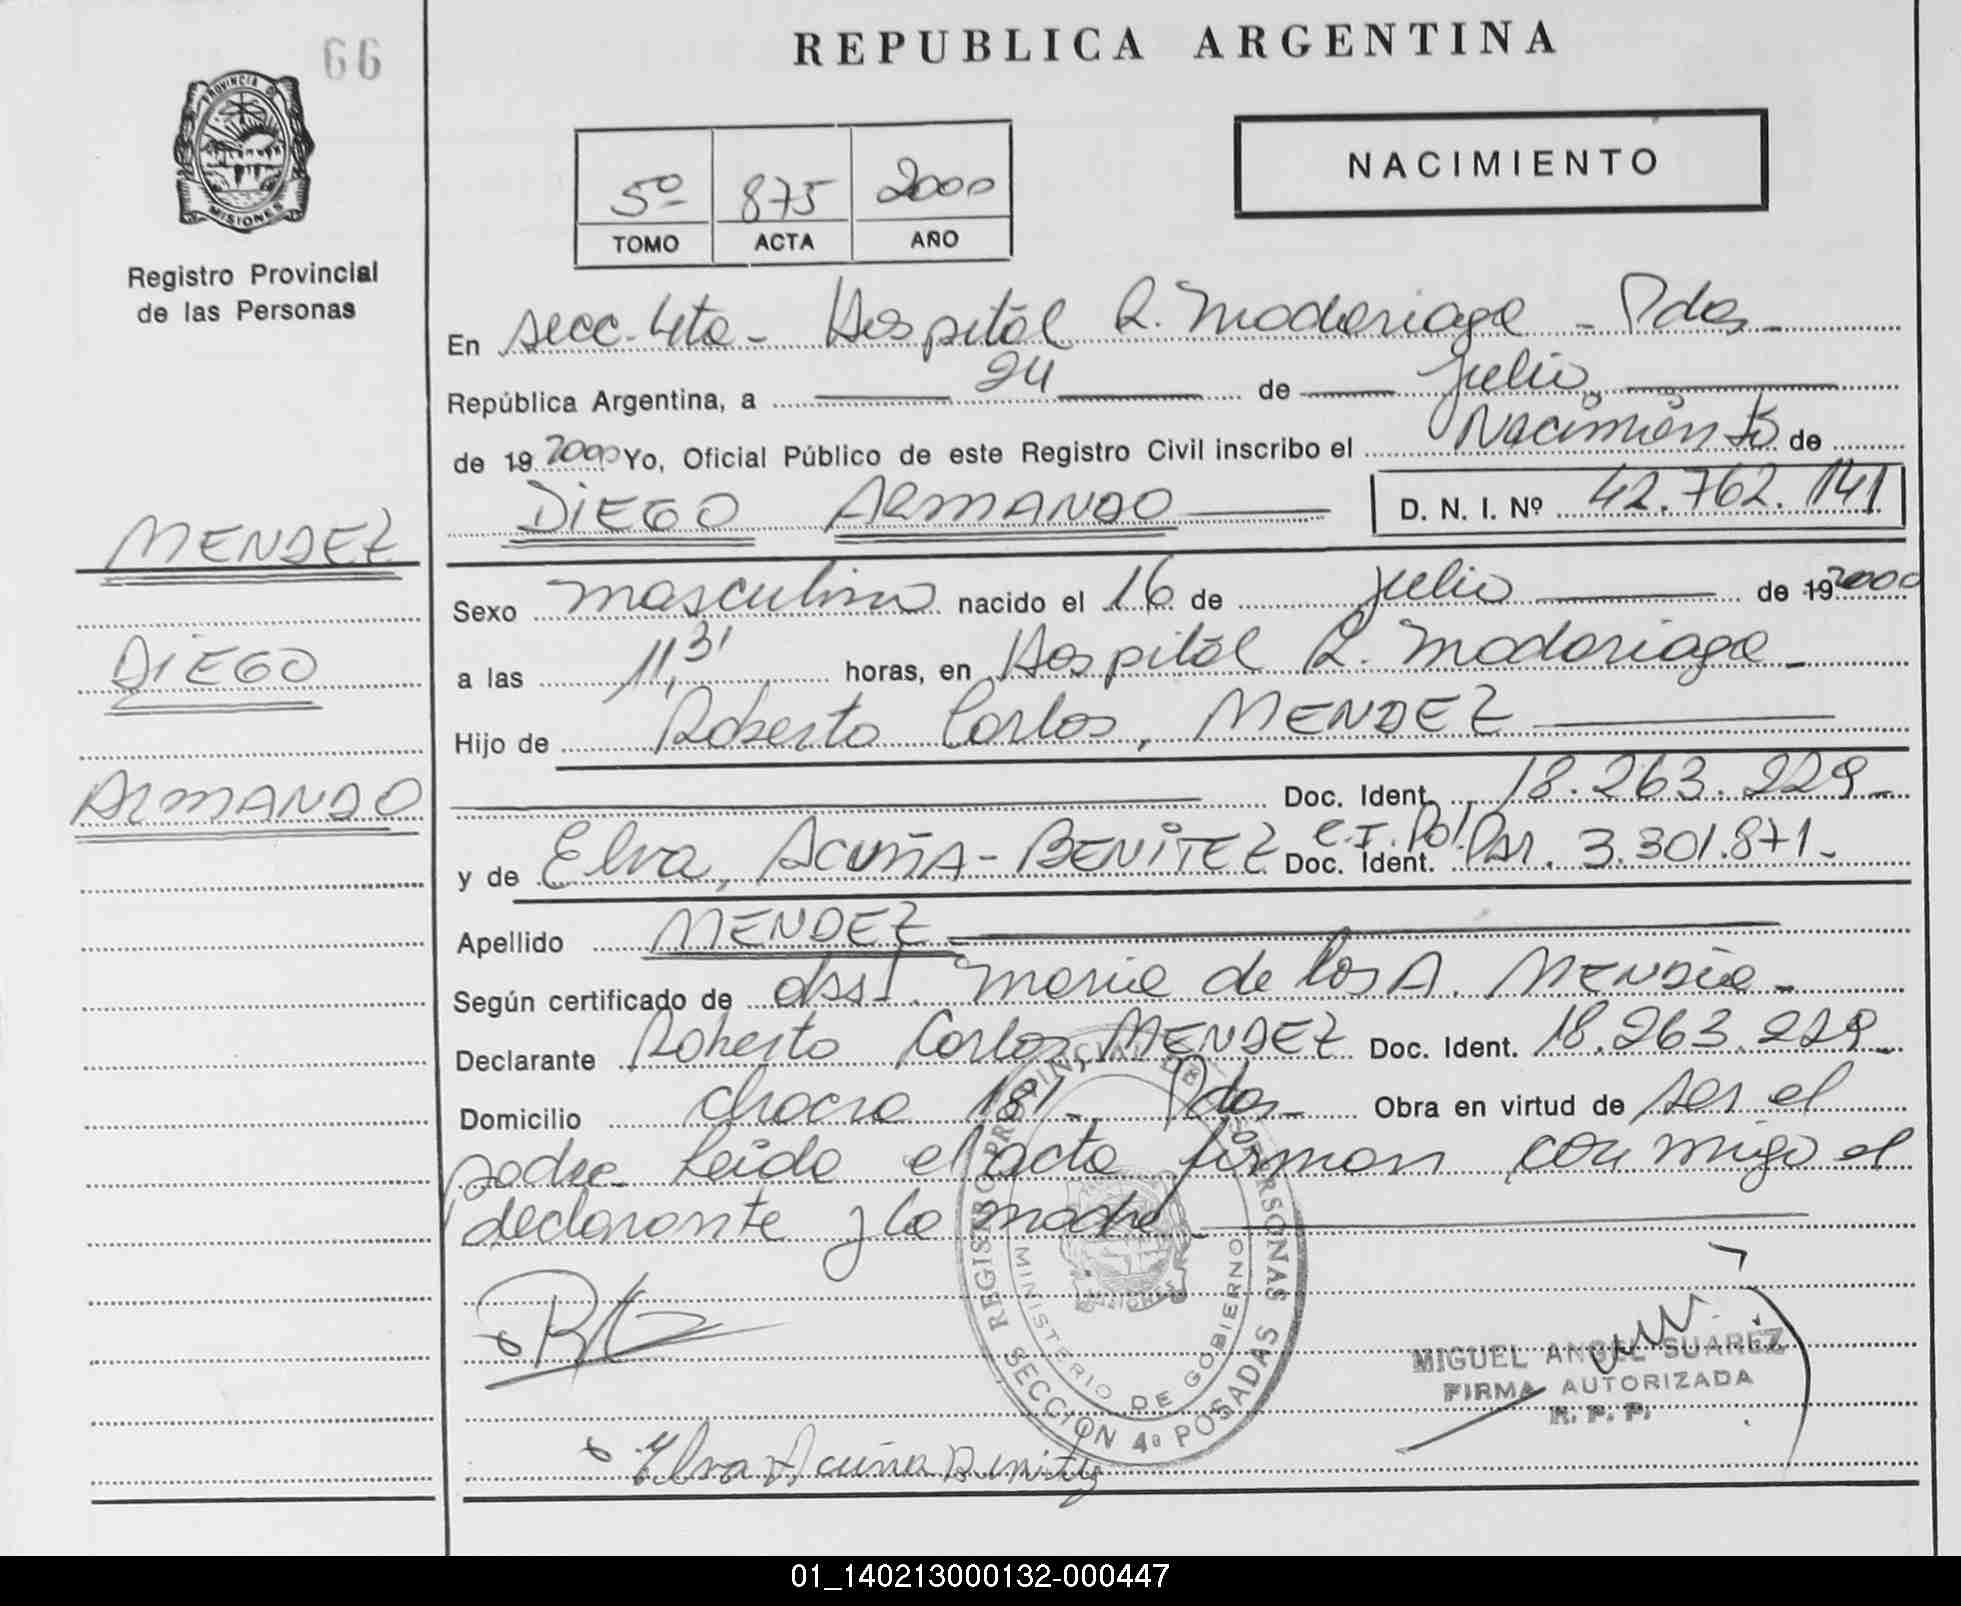 66
REPUBLICA ARGENTINA
PROVINCIA DE
MISIONES
Registro Provincial
de las Personas
5º 875 2000
TOMO ACTA AÑO
NACIMIENTO
En secc. 4ta - Hospital R. Madariaga - Pdas -
República Argentina, a 24 de Julio
de 19 2000 Yo, Oficial Público de este Registro Civil inscribo el Nacimiento de
DIEGO ARMANDO D. N. I. Nº 42.762.141
MENDEZ
DIEGO
ARMANDO
Sexo masculino nacido el 16 de Julio de 19 2000
a las 11,31 horas, en Hospital R. Madariaga -
Hijo de Roberto Carlos, MENDEZ
Doc. Ident. 18.263.229 -
y de Elva, ACUÑA - BENITEZ Doc. Ident. C.I. Pol. Par. 3.301.871 -
Apellido MENDEZ
Según certificado de obst. Maria de los A. MENDEZ -
Declarante Roberto Carlos MENDEZ Doc. Ident. 18.263.229 -
Domicilio chacra 181 - Pdas - Obra en virtud de ser el
padre - Leida el acta firman conmigo el
declarante y la madre -
REGISTRO PROVINCIAL DE LAS PERSONAS
MINISTERIO DE GOBIERNO
SECCION 4ª POSADAS
MISIONES
MIGUEL ANGEL SUAREZ
FIRMA AUTORIZADA
R. P. P.
Elva Acuña Benitez
01_140213000132-000447